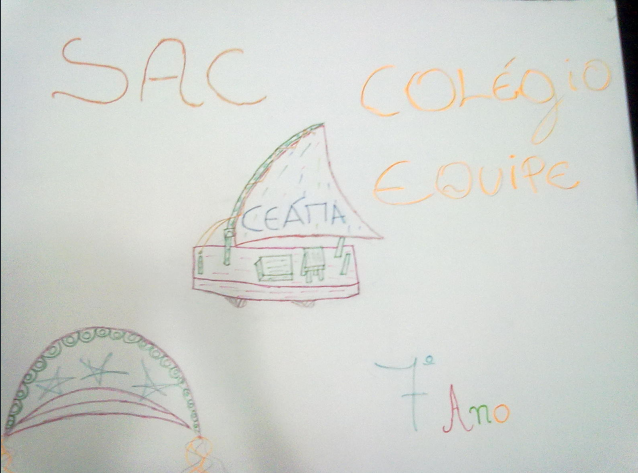 SAC
COLÉGIO
EQUIPE
CEÁПA
7º Ano